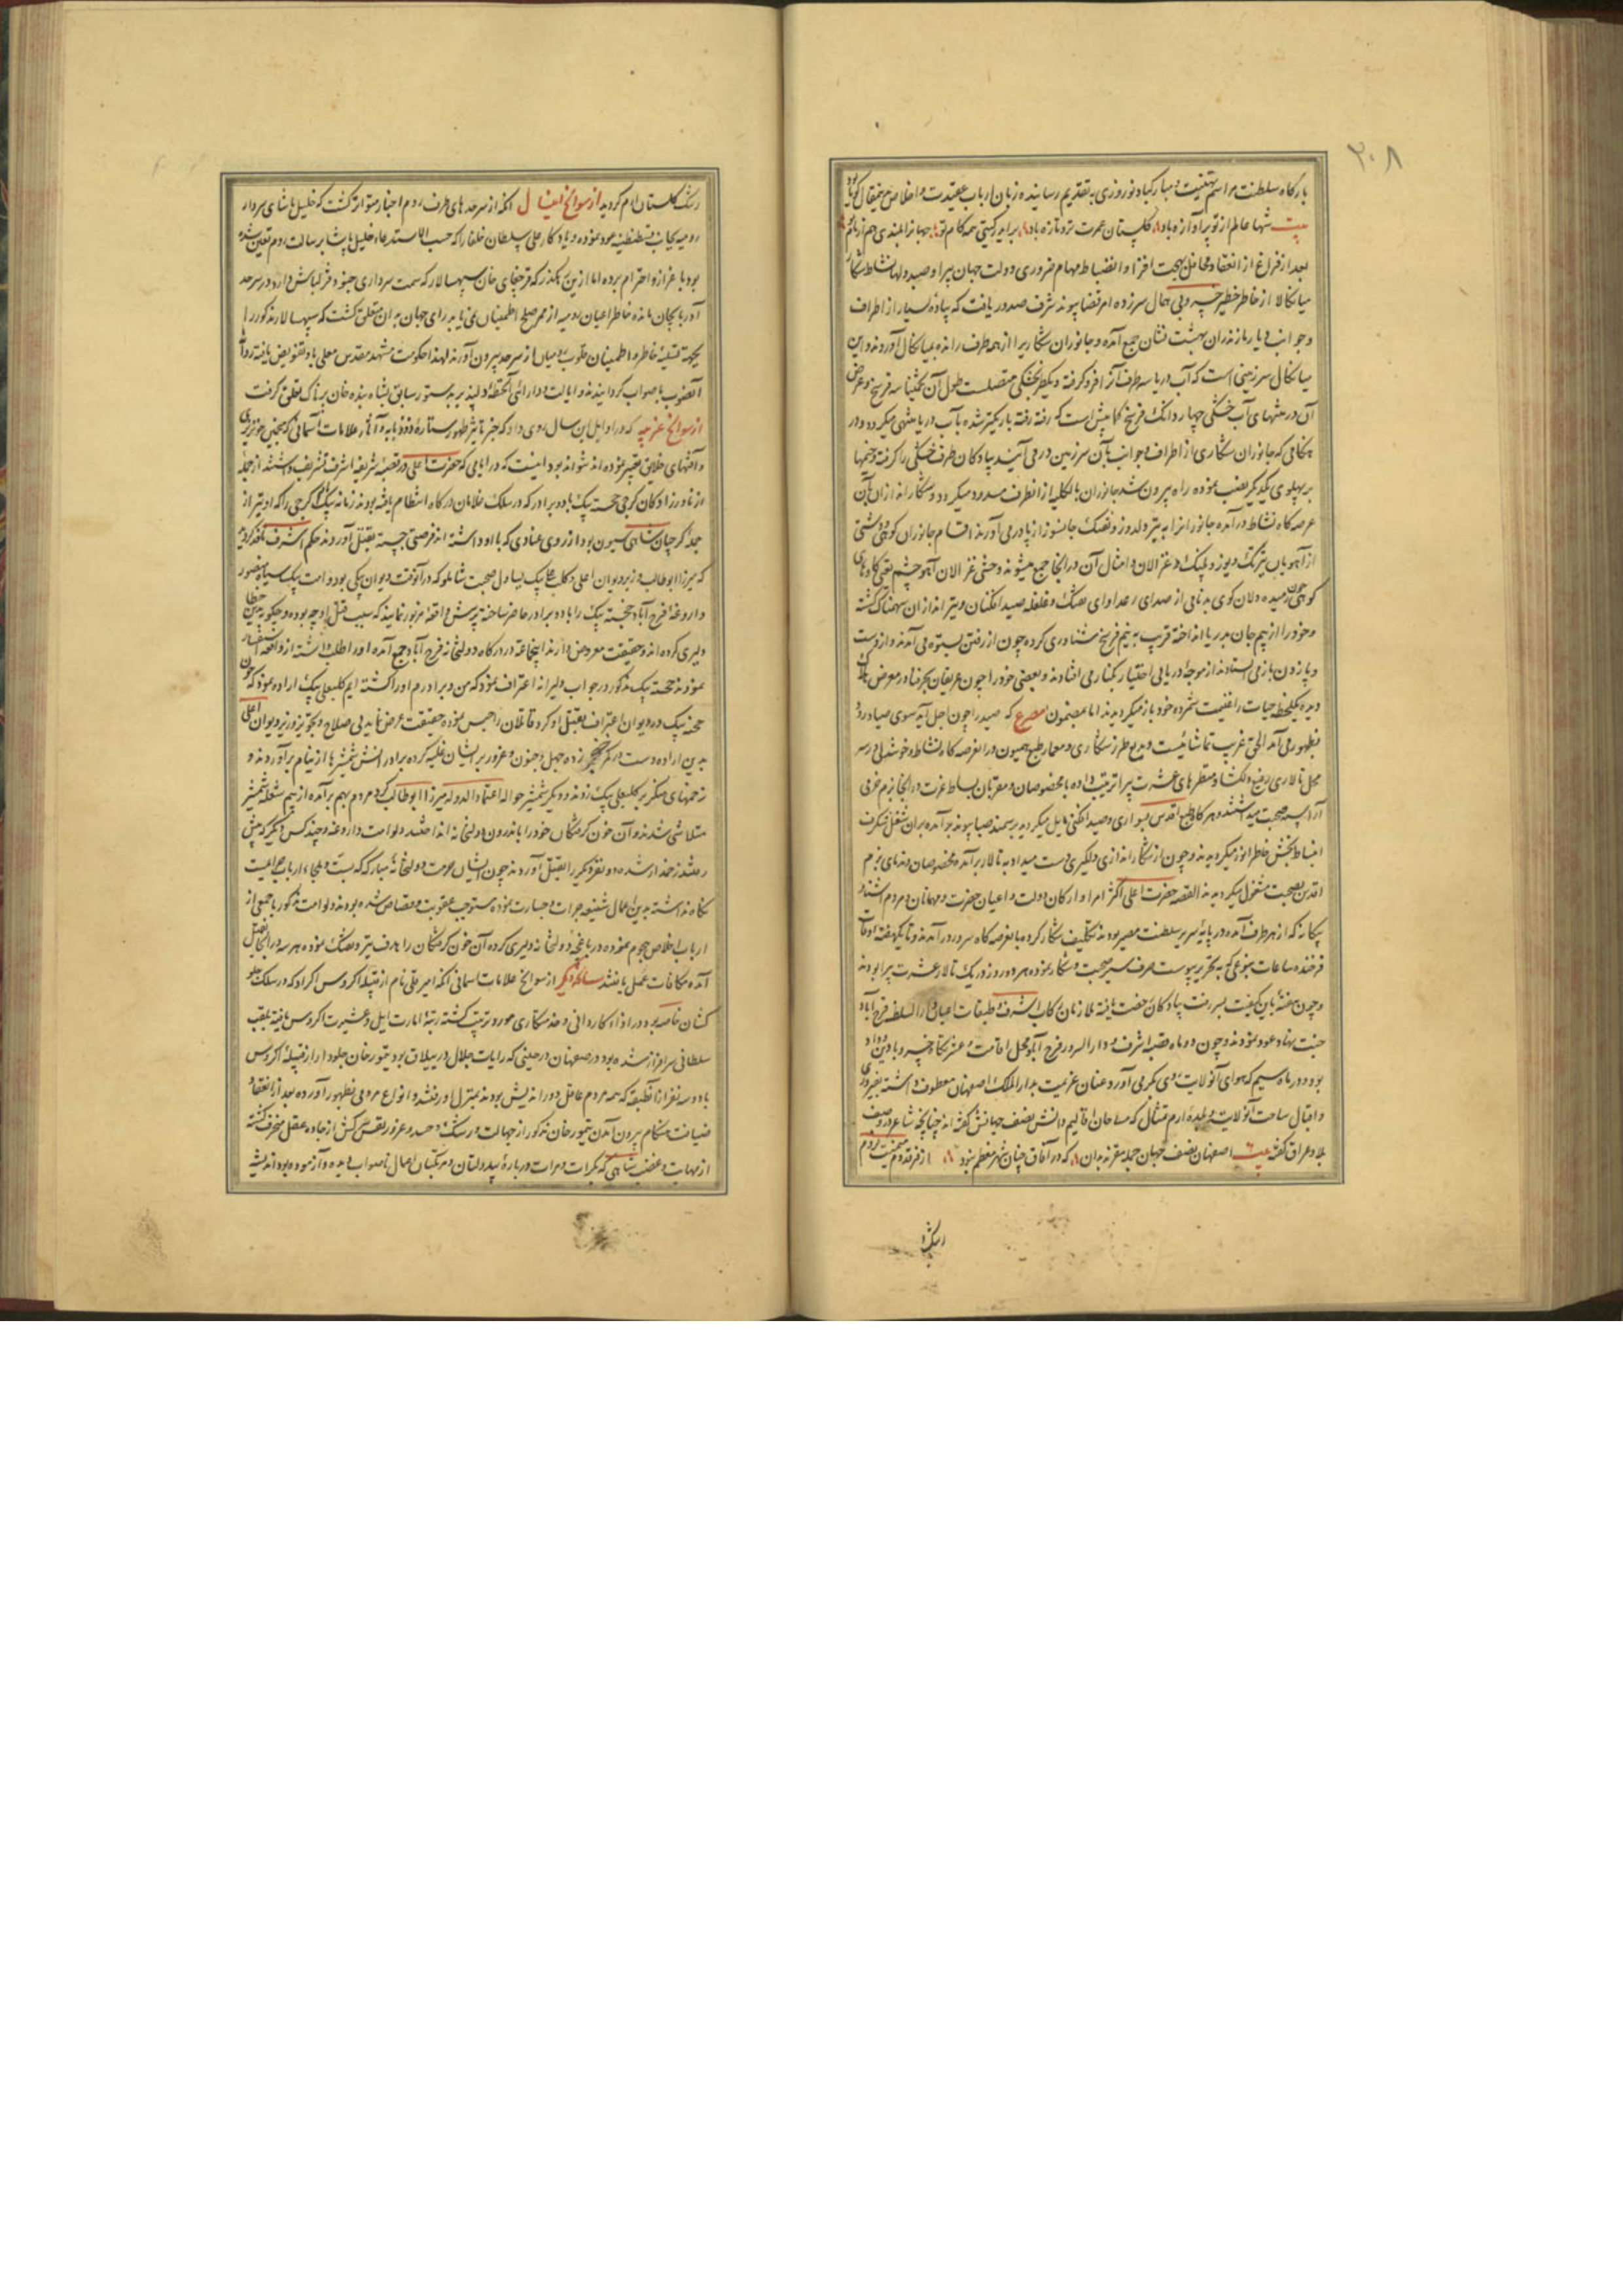 ۲۰۸
بارگاه سلطنت مراسم تهنیت و مبارکباد نوروزی به تقدیم رسانیده زبان ارباب عقیدت و اخلاص
بیت شها عالم از تو پر آوازه باد گلستان عمرت تر و تازه باد
بعد از فراغ از انعقاد محافل بهجت افزا و انضباط مهام ضروری دولت جهان پیرا و صید دلها نشاط شکار
میانکاله از خاطر خطیر خسرو بی همال سرزده امر قضا پیوند شرف صدور یافت که پیاده بسیار از اطراف
و جوانب دیار مازندران بهشت نشان جمع آمده و جانوران شکاری را از همه طرف رانده به میانکال آوردند و این
میانکال سرزمینی است که آب دریا سه طرف آنرا فرو گرفته و یکطرف بخشکی متصلست طول آن تخمینا سه فرسخ و عرض
آن در منتهای آب خشکی چهار دانک فرسخ کما بیش است که رفته رفته باریکتر شده باب دریا منتهی میگردد و در
هنگامی که جانوران شکاری از اطراف و جوانب بآن سرزمین در می آیند پیادگان طرف خشکی را گرفته و خیمها
بر پهلوی یکدیگر نصب نموده راه بیرون شد جانوران بالکلیه از انطرف مسدود میگردد و شکار اندازان بآن
عرصه گاه نشاط درآمده جانورانرا به تیر دلدوز و تفنک جانسوز از پا در می آورند اقسام جانوران کوهی و دشتی
از آهو و پلنک و غزالان و امثال آن در انجا جمع میشوند
کوهی رمیده دلان کوی بدنامی از صدای رعد آوای تفنک و غلغله صید افکنان و تیر اندازان سهمناک گشته
و خود را از بیم جان بدریا انداخته قریب به نیم فرسخ شناوری کرده چون از رفتن بستوه می آمدند و از دست
و پا زدن باز می ایستادند از موجه دریا بی اختیار بکنار می افتادند و بعضی خود را چون غریقان بحر فنا در معرض هلاک
دیده یکلحظه حیات را غنیمت شمرده خود باز میگردیدند اما بمضمون مصرع که صید را چون اجل آید سوی صیاد رود
بظهور می آمد الحق غریب تماشائیست و بدیع طرز شکاری و معمار طبع همیون در انعرصه گاه نشاط و خوشدلی در سر
محل تالاری رفیع دلگشا و منظرهای عشرت پیرا ترتیب داده با مخصوصان و مقربان بساط عزت در انجا بزم خرمی
آراسته صحبت میداشتند و هرگاه طبع اقدس بسواری و صید افکنی مایل میگردید بر سمند صبا پیوند برآمده بران شغل شگرف
انبساط بخش خاطر انور میگردیدند و چون از شکار اندازی دلگیری دست میداد به تالار برآمده با مخصوصان و ندمای بزم
اقدس بصحبت مشغول میگردیدند القصه حضرت اعلی اکثر امرا و ارکان دولت و اعیان حضرت و مهمانان و مردم آشنا و
بیگانه که از هر طرف آمده در پایه سریر سلطنت مصیر بودند تکلیف شکار کرده بانعرصه گاه سرور درآمدند و تا یکهفته اوقات
فرخنده ساعات بنوعی که به تحریر پیوست صرف سیر صحبت و شکار نموده هر دو روز در یک تالار عشرت پیرا بودند
و چون هفته باین کیفیت بسر رفت پیادگان رخصت یافته ملازمان رکاب اشرف و طبقات اعیان بدار السلطنه فرح آباد
جنت بنیاد عود نمودند و چون دو ماه قصبه اشرف و دار السرور فرح آباد محل اقامت و عشرتگاه خسرو با دین و داد
بود در ماه سیم که هوای آنولایت روی بگرمی آورد عنان عزیمت بدار الملک اصفهان معطوف داشته بفیروزی
و اقبال ساحت آنولایت و بلده ارم تمثال که مساحان اقالیم دانش نصف جهانش گفته اند چنانچه شاعر در وصف
بلاد عراق گفته بیت اصفهان نصف جهان جمله مقرند بدان که در آفاق چنان شهر معظم نبود از فر قدوم میمنت لزوم
رشک
رشک گلستان ارم گردید از سوانح اینسال آنکه از سرحدهای طرف روم اخبار متواتر گشت که خلیل پاشای سردار
رومیه بجانب قسطنطنیه عود نموده و یادگار علی سلطان خلفا را که حسب الاستدعاء خلیل پاشا برسالت روم تعیین شده
بود باعزاز و احترام برده اما ازین رهگذر که قرچغای خان سپهسالار که سمت سرداری جنود قزلباش دارد در سرحد
آذربایجان مانده خاطر اعیان رومیه از ممر صلح اطمینان نمی یابد رای جهان بدان متعلق گشت که سپهسالار مذکور را
بجهه تسلیه خاطر و اطمینان قلوب رومیان از سرحد بیرون آورند لهذا حکومت مشهد مقدس معلی باو تفویض یافته روانه
آنصوب با صواب گردانیدند و ایالت و دارائی آنخطه دلپذیر بدستور سابق بشاه بنده خان پرناک تعلق گرفت
از سوانح غریبه که در اوایل این سال روی داد که جز تاثیر ظهور ستاره ذو ذوابه و آثار علامات آسمانی که منجمین
و آفتهای خلایق تعبیر نموده اند نتواند بود اینست که در ایامی که حضرت اعلی در قصبه شریفه اشرف تشریف داشتند از جمله
از ناورزادگان گرجی خجسته بیک با دو برادر که در سلک غلامان درگاه انتظام یافته بودند زمانه بیک گرجی را که او نیز از
جمله گرجیان شاهی سیون بود از روی عنادی که با او داشته اند فرصتی جسته بقتل آوردند حکم اشرف نافذ گردید
که میرزا ابوطالب وزیر دیوان اعلی و کلبعلی بیک یساول صحبت شاملو که در آنوقت دیوان بیگی بود و امت بیک
داروغه فرح آباد خجسته بیک را با دو برادر حاضر ساخته پرسش واقعه مزبور نمایند که سبب قتل او چه بوده و چگونه بدین خطا
دلیری کرده اند و حقیقت معروض دارند اینجماعه در درگاه دولتخانه فرح آباد جمع آمده او را طلب داشته از واقعه استفسار
نمودند خجسته بیک مذکور در جواب دلیرانه اعتراف نمود که من و برادرم او را کشته ایم کلبعلی بیک اراده نمود که چون
خجسته بیک در دیوان اعتراف بقتل او کرد قاتلان را حبس نموده حقیقت عرض نماید بی صلاح و تجویز وزیر دیوان اعلی
بدین اراده دست در کمر خنجر زده جهل و جنون و غرور بر ایشان غلبه کرده برادرانش شمشیرها از نیام برآوردند و
زخمهای منکر بر کلبعلی بیک زدند و دیگر شمشیر حواله اعتماد الدوله میرزا ابوطالب کرد مردم بهم برآمده از بیم شعله شمشیر
متلاشی شدند و آن خون گرفتگان خود را باندرون دولتخانه انداختند و لوامت داروغه و چند کس دیگر که پیش
رفتند زخمدار شده دو نفر دیگر را بقتل آوردند چون ایشان حرمت دولتخانه مبارکه که بست و ملجاء ارباب جرایم است
نگاه نداشته بدین اعمال شنیعه جرات و جسارت نموده مستوجب عقوبت و قصاص شده بودند و لوامت مذکور با جمعی از
ارباب اخلاص هجوم نموده در باغچه دولتخانه دلیری کرده آن خون گرفتگان را هدف تیر و تفنک نموده هر سه در انجا بقتل
آمده مکافات عمل یافتند سانحه دیگر از سوانح علامات سمانی آنکه امیر علی نام از قبیله اکروس اکراد که در سلک جلو
کشان خاصه بود در ازاء کاردانی و خدمتکاری مورد تربیت گشته رتبه امارت ایل و عشیرت اکروس یافته بلقب
سلطانی سرافراز شده بود در صفهان در حینی که رایات جلال در ییلاق بود تیمور خان جلودار از قبیله اکروس
با دو سه نفر از آنطبقه که همه مردم عاقل دور اندیش بودند بمنزل او رفتند و انواع مردمی بظهور آورده بعد از انعقاد
ضیافت هنگام بیرون آمدن تیمور خان مذکور از جهالت و رشک و حسد و غرور نفس سرکش از جاده عقل منحرف گشته
از مهابت و غضب شاهی که بکرات و مرات درباره بیدولتان و مرتکبان اعمال ناصواب دیده و آزموده بود اندیشه